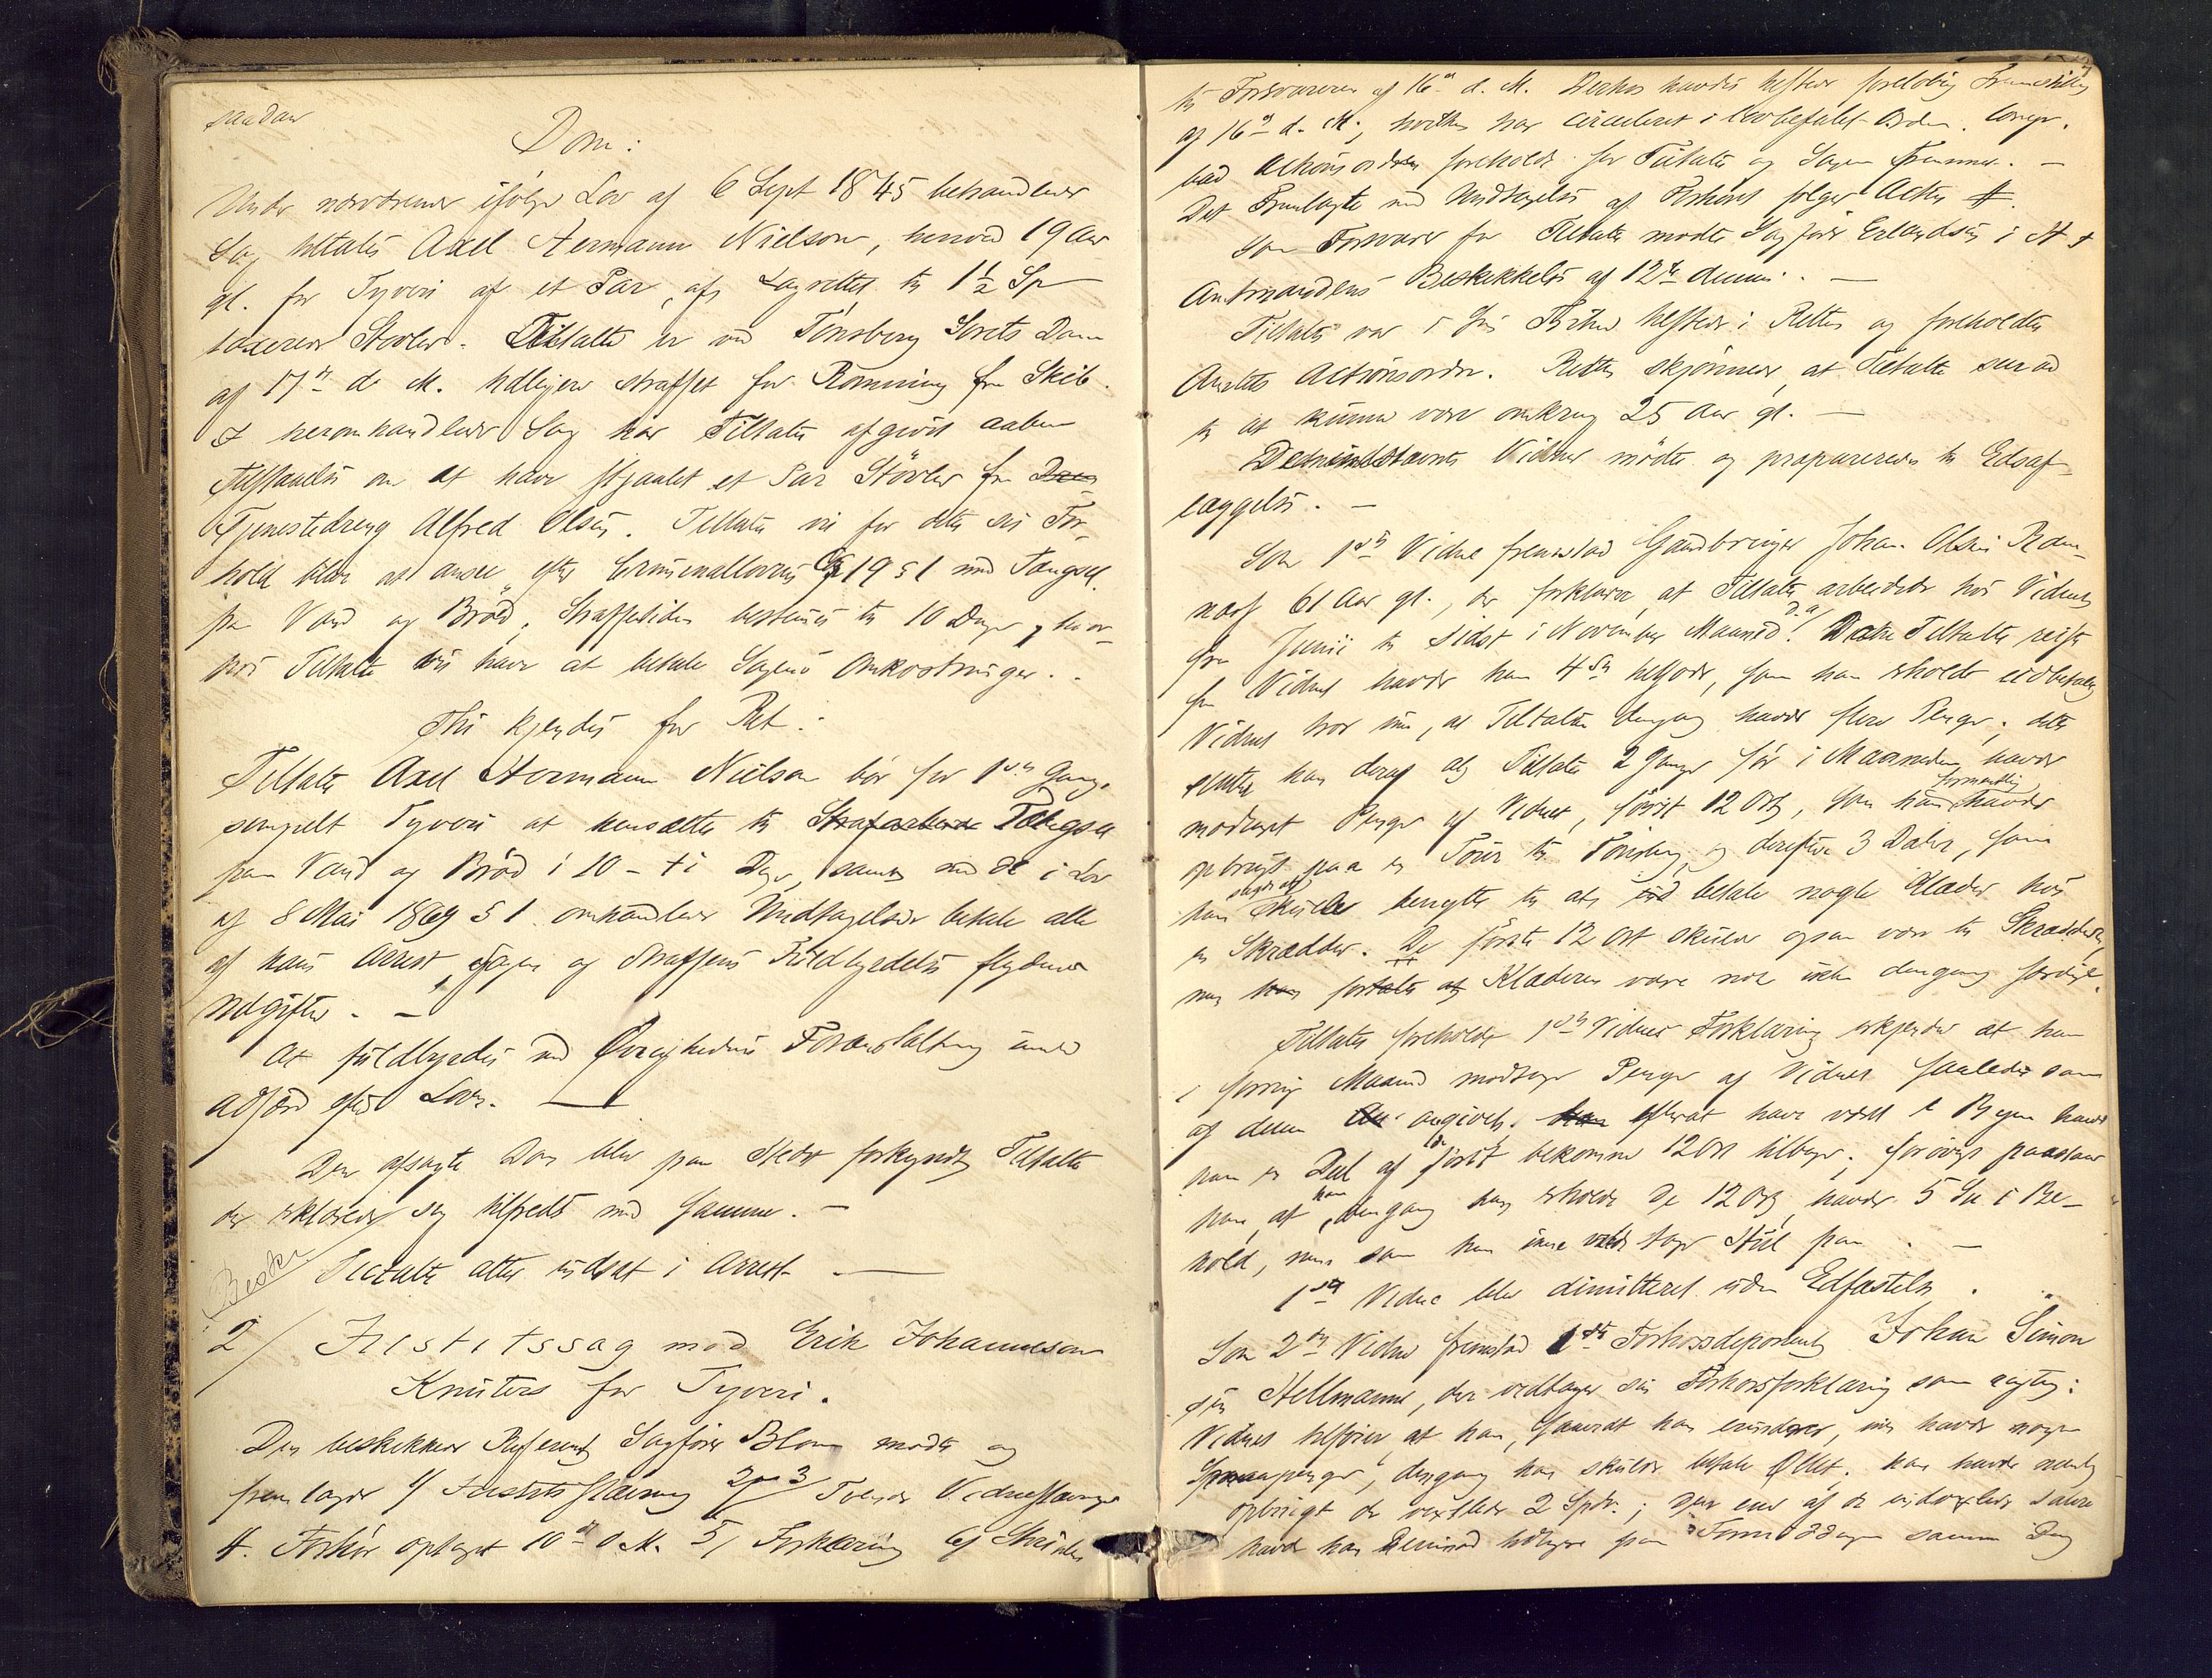 saadan
Dom:
Under nærværende ifølge Lov af 6 Sept 1845 behandlede
Sag tiltales Axel Hermann Nielsen, henved 19 Aar
gl. for Tyveri af et Par, af Lagrettet til 1½ Sp
taxerede Støvler. Tiltalte er ved Tønsberg Sørets Dom
af 17de d. M. tidligere straffet for Rømning fra Skib.
I heromhandlede Sag har Tiltalte afgivet aaben
Tilstaaelse om at have stjaalet et Par Støvler fra
Tjenestedreng Alfred Olsen. Tiltalte vil for dette sit For-
hold blive at ansee efter Criminallovens Cap 19 § 1 med Fængsel
paa Vand og Brød. Straffetiden bestemmes til 10 Dage, hvor-
hos Tiltalte vil have at betale Sagens Omkostninger.
Thi kjendes for Ret:
Tiltalte Axel Hermann Nielsen bør for 1ste Gang
simpelt Tyveri at hensættes til Strafarbeide Fængsel
paa Vand og Brød i 10 - ti Dage, samt med de i Lov
af 8 Mai 1869 § 1 omhandlede Undtagelser betale alle
af hans Arrest, Sagen og Straffens Fuldbyrdelse flydende
Udgifter. —
At fuldbyrdes ved Øvrighedens Foranstaltning under
Adfærd efter Loven. —
Den afsagte Dom blev paa Stedet forkyndt Tiltalte
der erklærede sig tilfreds med samme. —
Beskr
Tiltalte atter indsat i Arrest. —
2/ Justitssag mod Erik Johannesen
Knuters for Tyveri.
Den beskikkede Referent Sagfører Blom mødte og
fremlagde 1/ Justits 2 og 3/ Tvende Vidnestævninger
4. Forhør optaget 10de d. M. 5/ Forklaring 6/
til Forsvareren af 16de d. M. Derhos havdes heftet foreløbig
af 16de d. M., hvilke har circuleret i lovbefalet Orden.
bad Actionsordren foreholdt for Tiltalte og Sagen fremmet. —
Det Fremlagte med Undtagelse af Forhøret følger Acten
Som Forsvarer for Tiltalte mødte Sagfører Erlandsen i
Amtmandens Beskikkelse af 12te dennes. —
Tiltalte var i Frihed tilstede i Retten og foreholdtes
Amtets Actionsordre. Retten skjønnede, at Tiltalte saa ud
til at kunne være omkring 25 Aar gl. —
De indstævnte Vidner mødte og præpareredes til Edsaf-
læggelse. —
Som 1ste Vidne fremstod Gaardbruger Johan Olsen
61 Aar gl., der forklarer, at Tiltalte arbeidede hos Vidnet
fra Junii til sidst i November Maaned d.A. Da Tiltalte reiste
fra Vidnet havde han 4 tilgode, som han erholdt udbetalt
Vidnet tror ikke, at Tiltalte dengang havde flere Penge; dette
slutter han deraf at Tiltalte 2 Gange før i Maaneden havde
modtaget Penge af Vidnet, først 12 Ort, som han havde
opbrugt paa en Tour til Tønsberg, og derefter 3 Daler, som
han skulde benytte til at betale nogle Klæder hos
en Skrædder. De første 12 Ort skulde ogsaa være til Skrædderen,
men Klæderne vare nok ikke dengang færdige.
Tiltalte foreholdt 1ste Vidnes Forklaring erkjender at han
i forrige Maaned modtog Penge af Vidnet saaledes som
af dette angivet, efterat have været i Byen havde
han en Del af de først bekomne 12 Ort tilbage; forøvrigt paastaar
han, at han dengang han erholdt de 12 Ort havde 5 i Be-
hold, men som han ikke tog Hul paa. —
1ste Vidne blev dimitteret uden Edfæstelse.
Som 2det Vidne fremstod 1ste Forhørsdeponent Johan Simon
Hellmann, der vedtager sin Forhørsforklaring som rigtig:
Vidnet tilføier at han, saavidt han erindrer, ikke havde nogen
Smaapenge, dengang han skulde betale Øllet. han havde nemlig
opbrugt de vexlede 2 Spd.; den ene af de indvexlede
havde han tidligere paa Formiddagen samme Dag